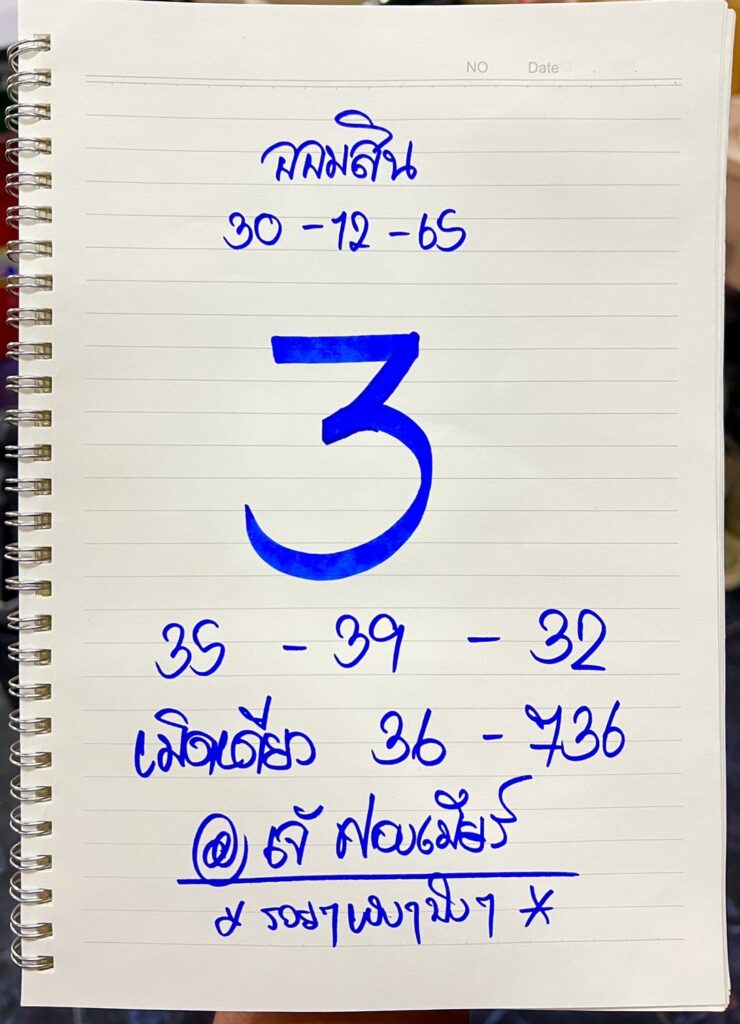 NO Date
ออมสิน
30 - 12 - 65
3
35 - 39 - 32
เม็ดเดียว 36 - 736
@ เจ๊ ฟองเบียร์
* รวยๆ เฮงๆ ปังๆ *